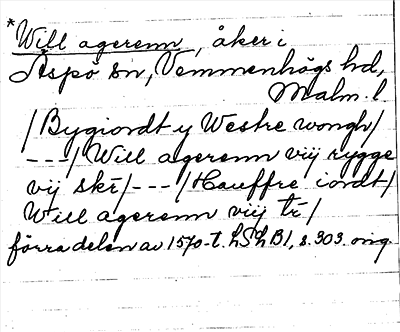 *Will agerenn, åker i
Äspö sn, Vemmenhögs hd,
Malm. l.
/Bygiordt y Westre wongh/
---/Will agerenn viij rygge
vij skr/---/Hauffre iordt/
Will agerenn viij tr/
förra delen av 1570-t. LSth B1, s. 303. orig.